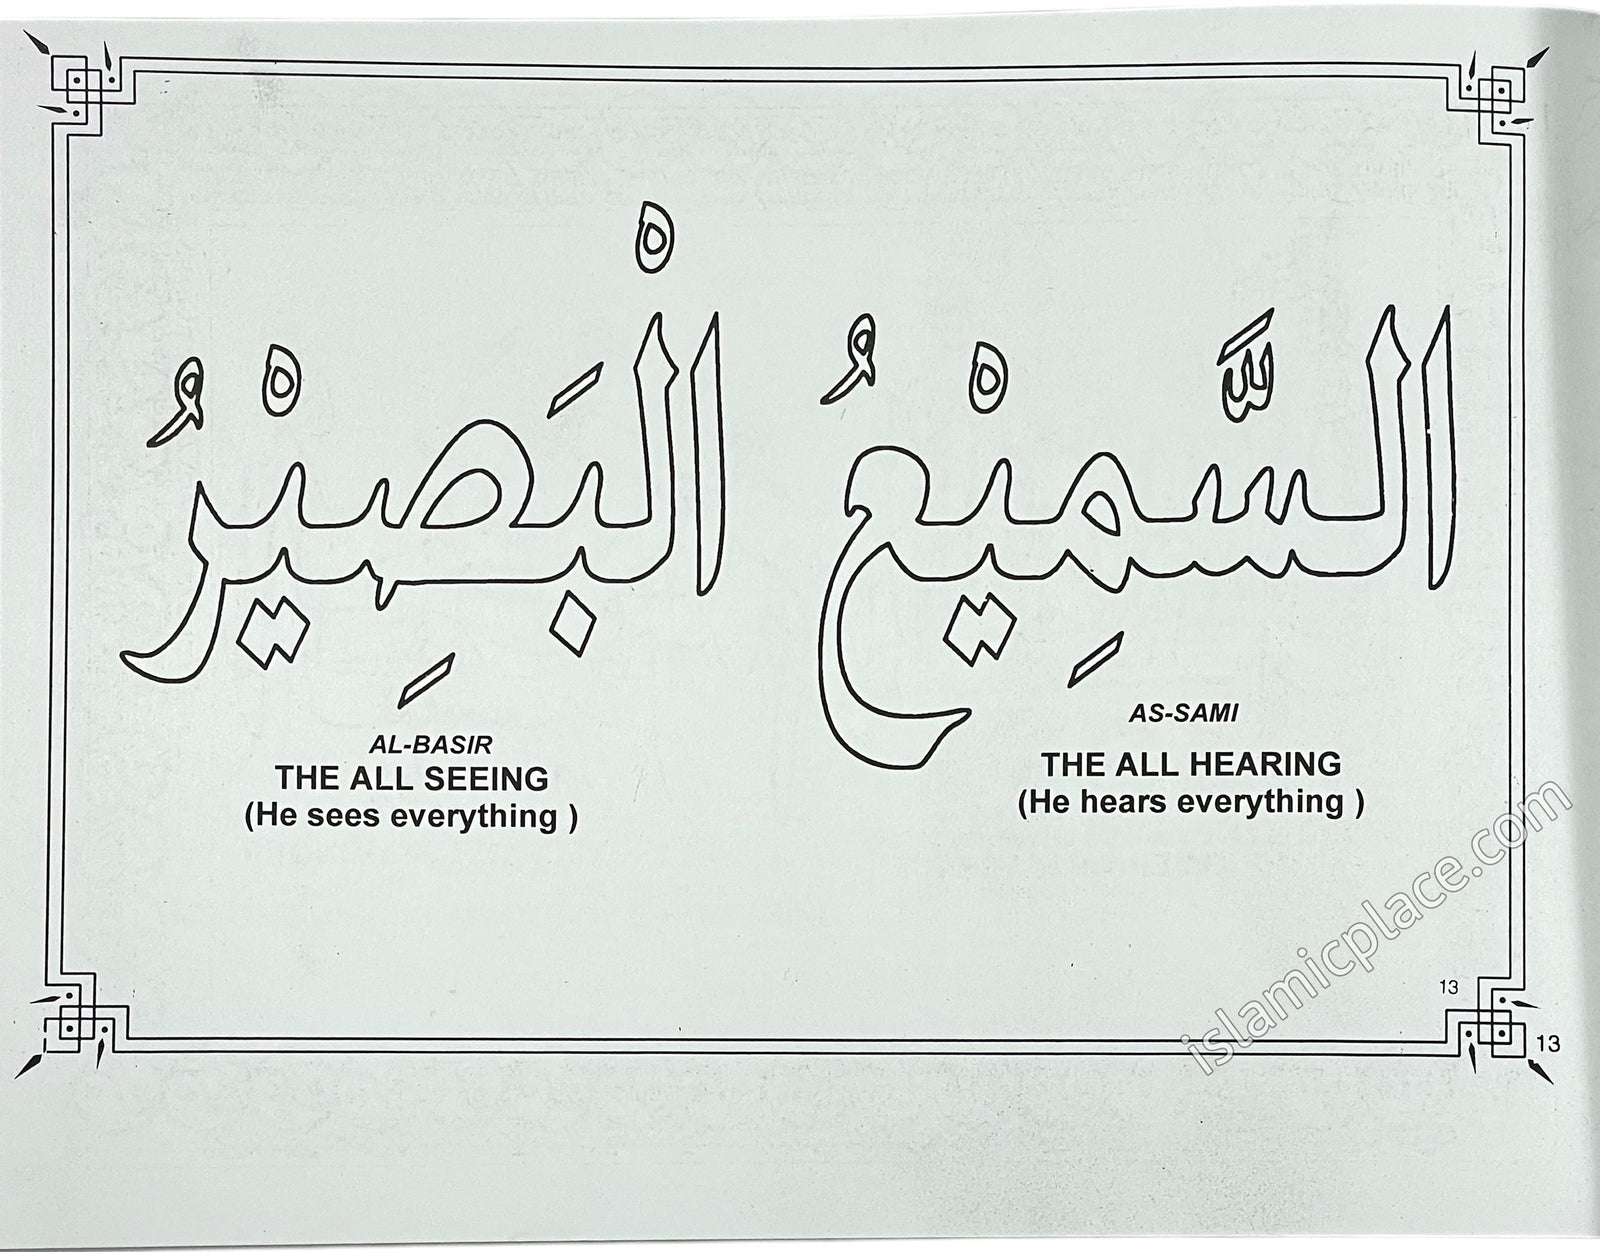 السَّمِيْعُ
AS-SAMI
THE ALL HEARING
(He hears everything )
الْبَصِيْرُ
AL-BASIR
THE ALL SEEING
(He sees everything )
13
13
islamicplace.com